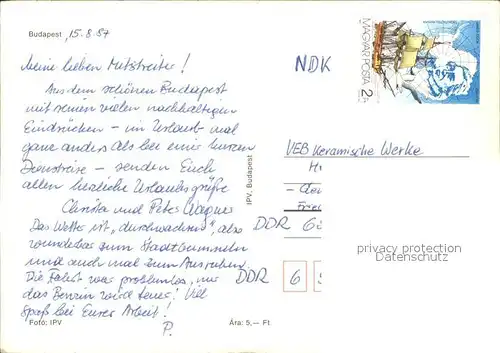 Budapest, 15.8.87
Meine lieben Mitstreiter!
Aus dem schönen Budapest
mit seinen vielen nachhaltigen
Eindrücken – im Urlaub mal
ganz anders als bei einer kurzen
Dienstreise – senden Euch
allen herzliche Urlaubsgrüße
Christa und Peter Wagner
Das Wetter ist "durchwachsen", also
wunderbar zum Stadtbummeln
und auch mal zum Ausruhen.
Die Fahrt war problemlos, nur
das Benzin wird teuer! Viel
Spaß bei Eurer Arbeit!
P.
Fotó: IPV
Ára: 5,— Ft
IPV, Budapest
MAGYAR POSTA 2 Ft
NDK
VEB Keramische Werke
DDR
DDR 6
privacy protection
Datenschutz